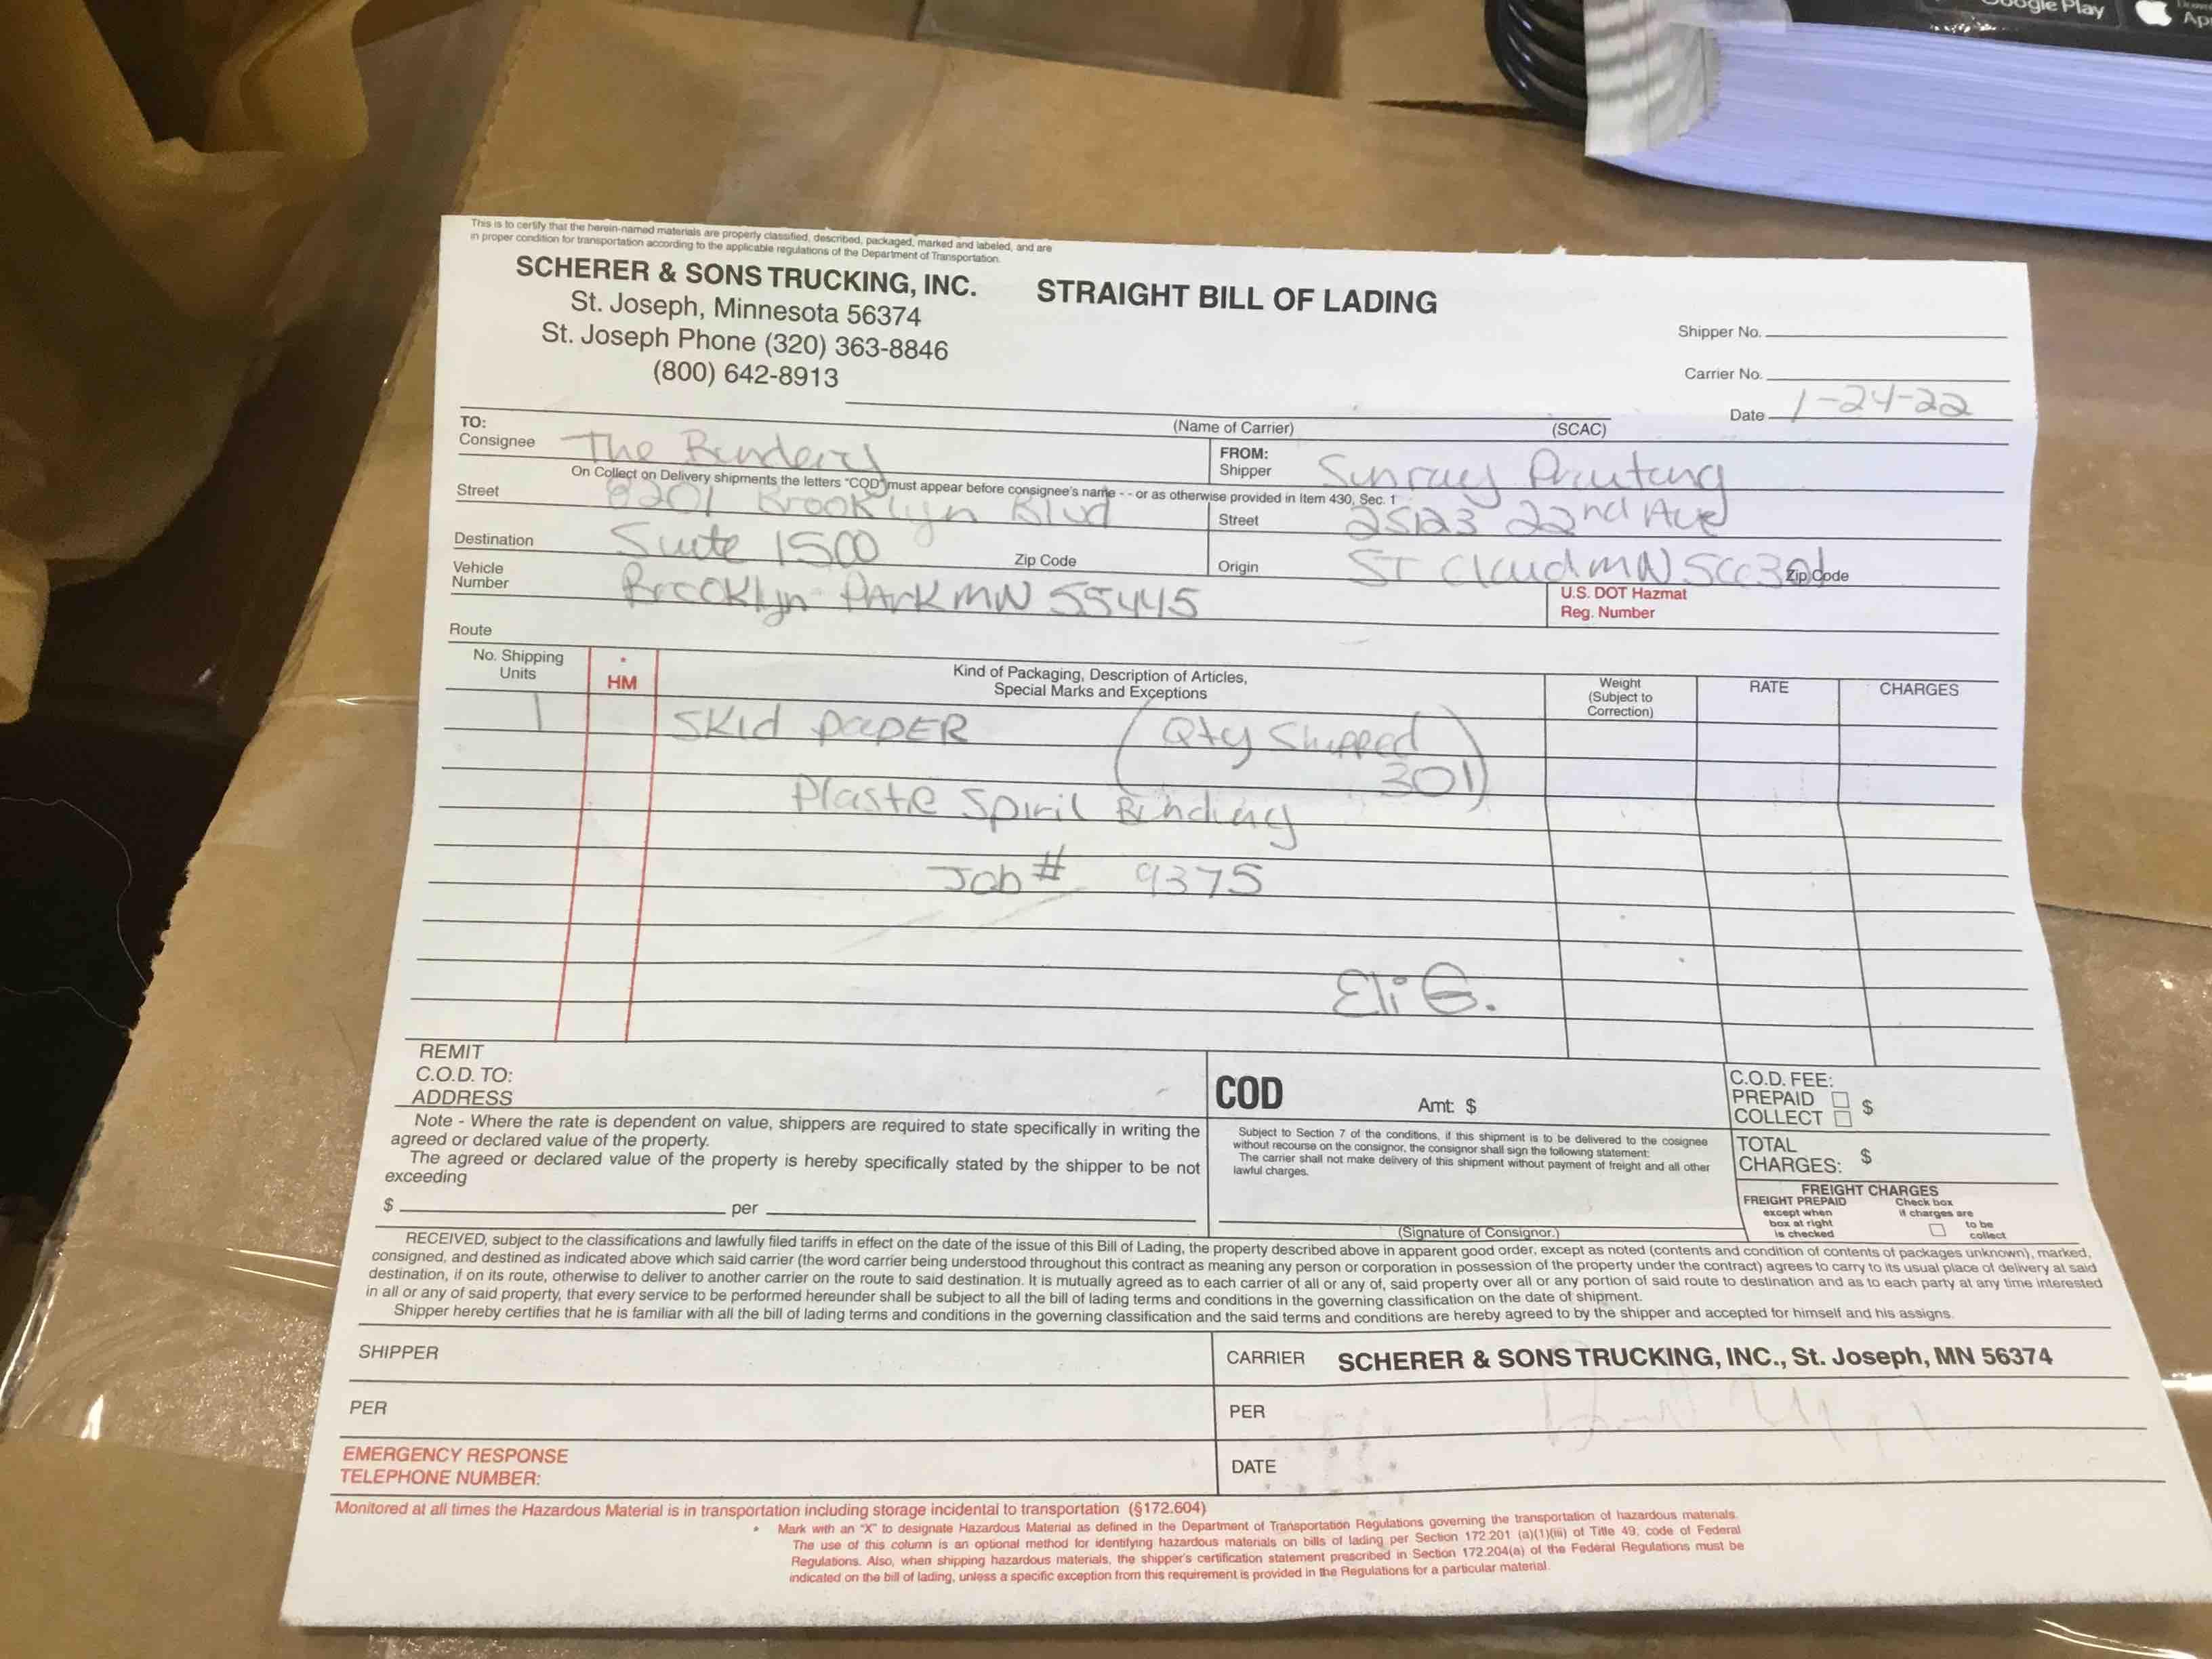 Google Play
This is to certify that the herein-named materials are properly classified, described, packaged, marked and labeled, and are
in proper condition for transportation according to the applicable regulations of the Department of Transportation.
SCHERER & SONS TRUCKING, INC.
STRAIGHT BILL OF LADING
St. Joseph, Minnesota 56374
St. Joseph Phone (320) 363-8846
(800) 642-8913
Shipper No.
Carrier No.
Date 1-24-22
(Name of Carrier) (SCAC)
TO:
Consignee The Bindery
FROM:
Shipper Sunray Printing
On Collect on Delivery shipments the letters "COD" must appear before consignee's name - - or as otherwise provided in Item 430, Sec. 1
Street 8201 Brooklyn Blvd
Street 25123 22nd Ave
Destination Suite 1500 Zip Code
Origin ST Cloud MN Zip Code
Vehicle
Number Brooklyn PARK MN 55445
U.S. DOT Hazmat
Reg. Number
Route
No. Shipping
Units
*
HM
Kind of Packaging, Description of Articles,
Special Marks and Exceptions
Weight
(Subject to
Correction)
RATE
CHARGES
1 SKid paPER (Qty Shipped
301)
Plastic Spiril Binding
Job # 9375
Eli G.
REMIT
C.O.D. TO:
ADDRESS
COD Amt: $
C.O.D. FEE:
PREPAID
COLLECT $
Note - Where the rate is dependent on value, shippers are required to state specifically in writing the
agreed or declared value of the property.
The agreed or declared value of the property is hereby specifically stated by the shipper to be not
exceeding
$ per
Subject to Section 7 of the conditions, if this shipment is to be delivered to the cosignee
without recourse on the consignor, the consignor shall sign the following statement:
The carrier shall not make delivery of this shipment without payment of freight and all other
lawful charges.
(Signature of Consignor.)
TOTAL
CHARGES: $
FREIGHT CHARGES
FREIGHT PREPAID
except when
box at right
is checked
Check box
if charges are
to be
collect
RECEIVED, subject to the classifications and lawfully filed tariffs in effect on the date of the issue of this Bill of Lading, the property described above in apparent good order, except as noted (contents and condition of contents of packages unknown), marked,
consigned, and destined as indicated above which said carrier (the word carrier being understood throughout this contract as meaning any person or corporation in possession of the property under the contract) agrees to carry to its usual place of delivery at said
destination, if on its route, otherwise to deliver to another carrier on the route to said destination. It is mutually agreed as to each carrier of all or any of, said property over all or any portion of said route to destination and as to each party at any time interested
in all or any of said property, that every service to be performed hereunder shall be subject to all the bill of lading terms and conditions in the governing classification on the date of shipment.
Shipper hereby certifies that he is familiar with all the bill of lading terms and conditions in the governing classification and the said terms and conditions are hereby agreed to by the shipper and accepted for himself and his assigns.
SHIPPER
CARRIER SCHERER & SONS TRUCKING, INC., St. Joseph, MN 56374
PER
PER
EMERGENCY RESPONSE
TELEPHONE NUMBER:
DATE
Monitored at all times the Hazardous Material is in transportation including storage incidental to transportation (§172.604)
* Mark with an "X" to designate Hazardous Material as defined in the Department of Transportation Regulations governing the transportation of hazardous materials.
The use of this column is an optional method for identifying hazardous materials on bills of lading per Section 172.201 (a)(1)(iii) of Title 49, code of Federal
Regulations. Also, when shipping hazardous materials, the shipper's certification statement prescribed in Section 172.204(a) of the Federal Regulations must be
indicated on the bill of lading, unless a specific exception from this requirement is provided in the Regulations for a particular material.